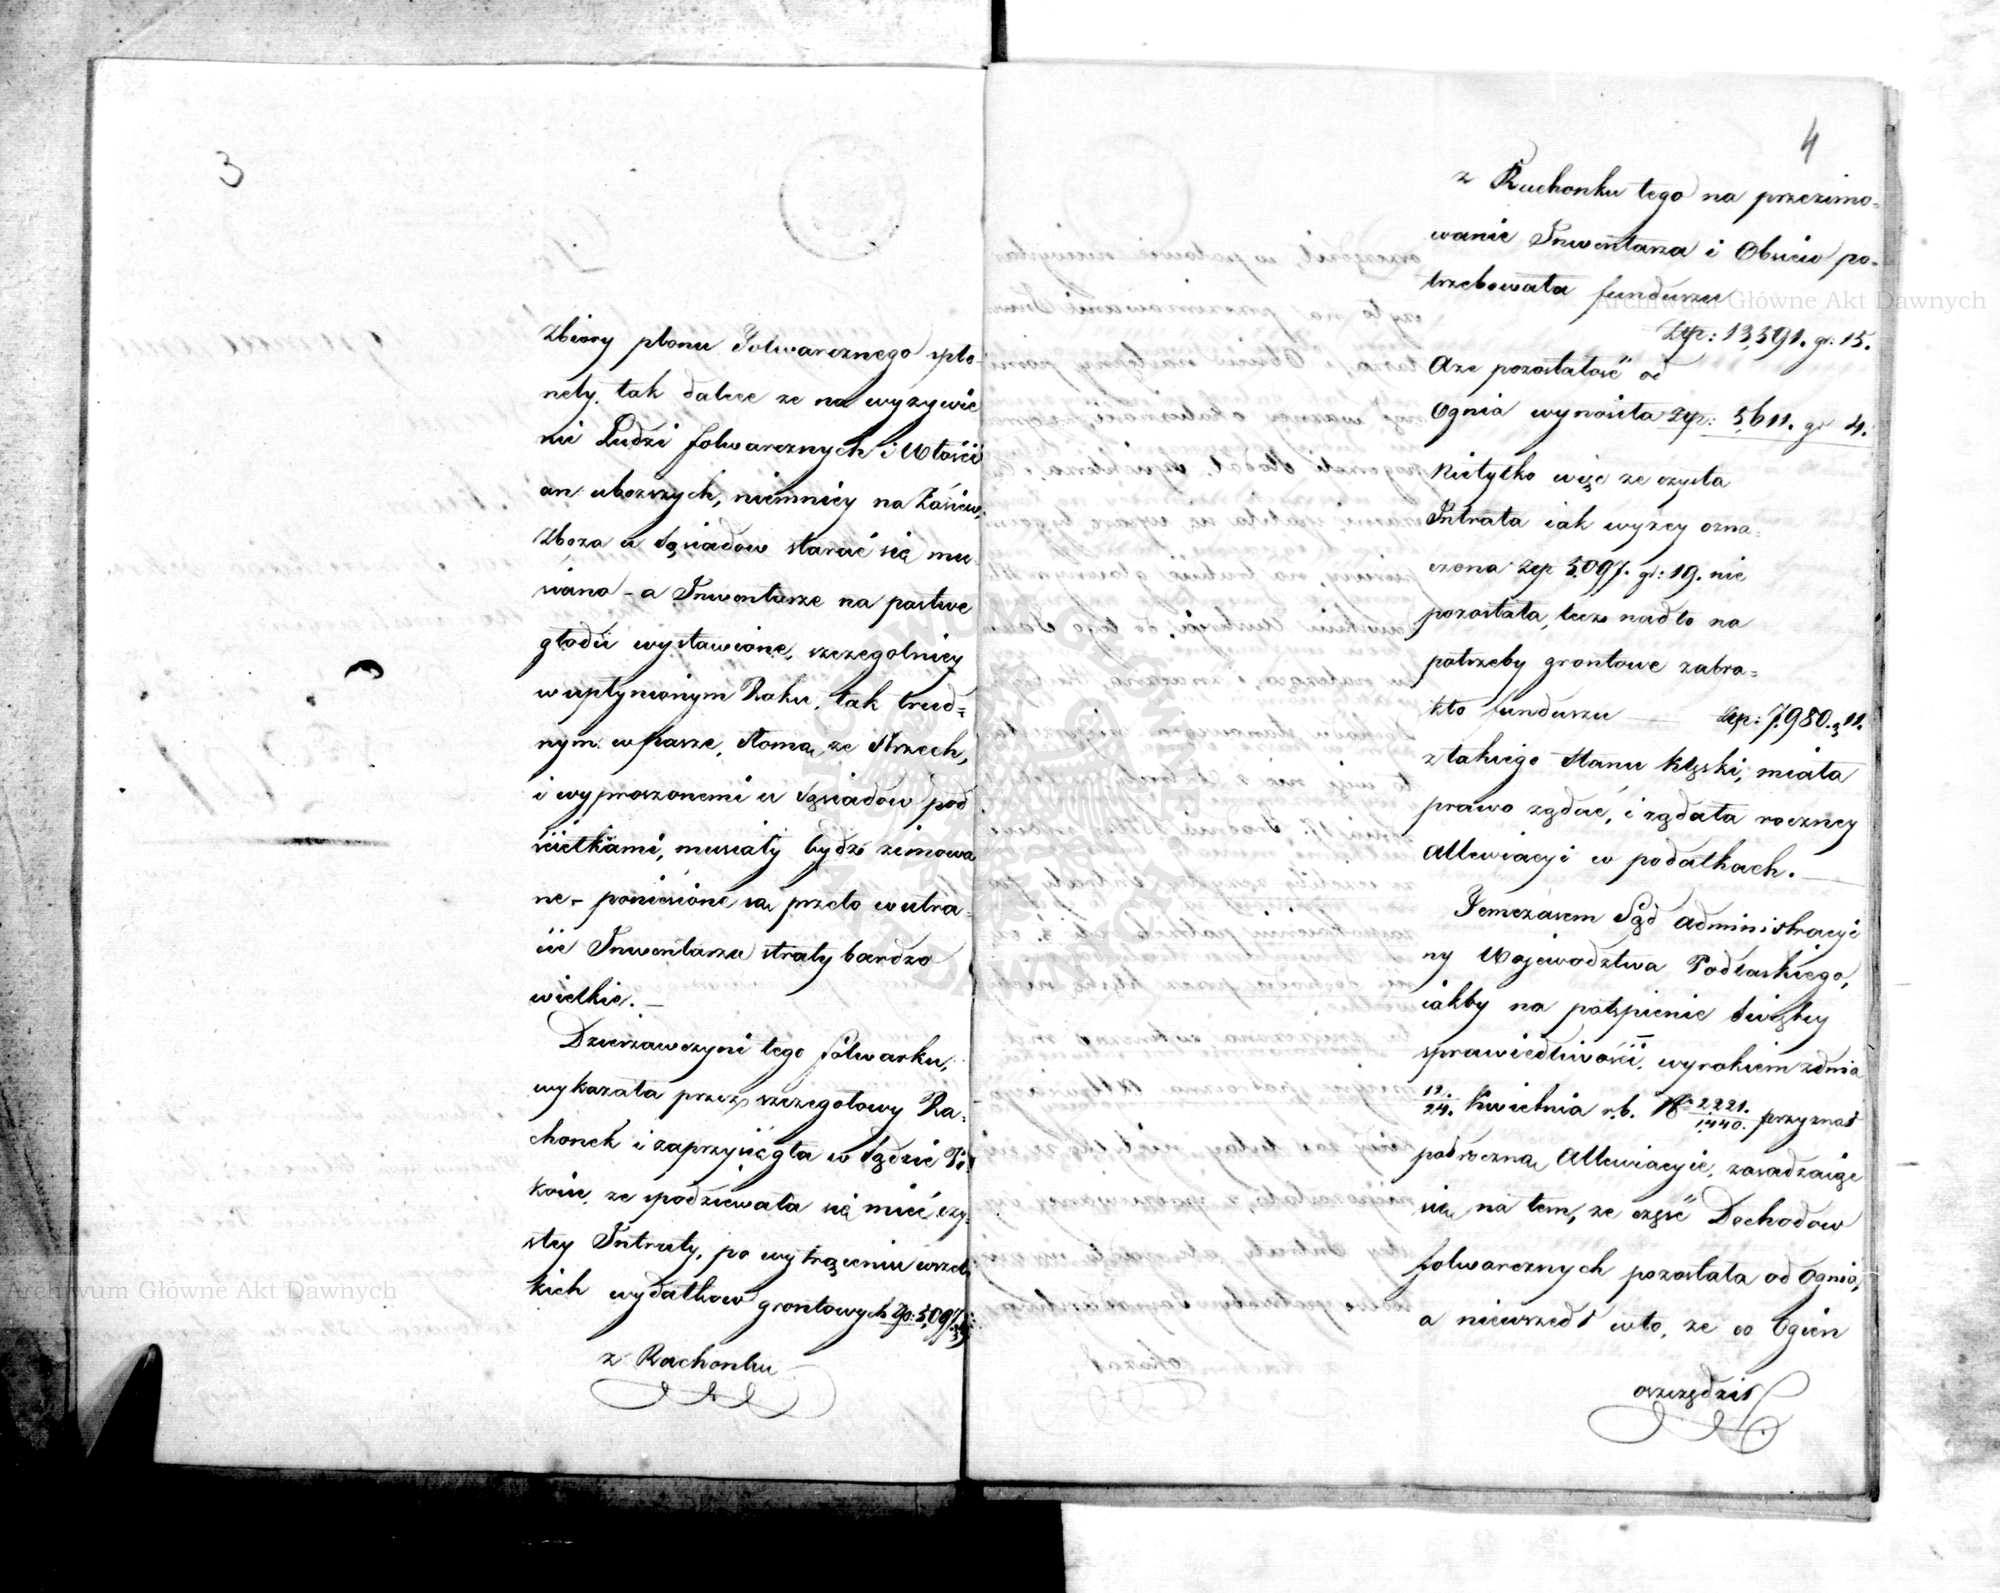 3
zbiory plonu Folwarcznego spło-
nęły, tak dalece ze na wyzywie
nie Ludzi folwarcznych i Włości
an uboższych, niemniey na Zasiew,
Zboza u Sąsiadow starać się mu-
siano - a Inwentarze na pastwę
głodu wystawione, szczegolniey
w upłynionym Roku, tak trud-
nym w pasze, słomą ze strzech,
i wyproszonemi u Sąsiadow pod
ściełkami, musiały bydź zimowa
ne - poniesione są przeto w utra-
cie Inwentarza straty bardzo
wielkie. —
Dzierzawczyni tego folwarku,
wykazała przez szczegołowy Ra-
chonek i zaprzysięgła w Sądzie Po
koiu, ze spodziewała się mieć czy-
stey Intraty, po wytrąceniu wszel-
kich wydatkow grontowych Zp: 5,097
z Rachonku
4
z Rachonku tego na przezimo-
wanie Inwentarza i Obsiew po-
trzebowała funduszu
Złp: 13,591. gr: 15.
A ze pozostałość od
Ognia wynosiła złp: 5,611. gr 4.
Nietylko więc ze czysta
Intrata iak wyzey ozna-
czona złp 5,097. gr: 19. nie
pozostała, lecz nadto na
potrzeby grontowe zabra-
kło funduszu — złp: 7,980. g 11.
z takiego stanu klęski, miała
prawo ządać, i ządała roczney
Allewiacyi w podatkach. —
Tymczasem Sąd Administracyi
ny Województwa Podlaskiego,
iakby na potępienie Swiętey
sprawiedliwości, wyrokiem z dnia
12./24. Kwietnia r. b. No 2221./1440. przyznał
połroczną Allewiacyie, zasadzaiąc
się na tem, ze część Dochodow
folwarcznych pozostała od Ognia,
a niewszedł w to, ze co Ogień
oszczędził
Archiwum Główne Akt Dawnych
Archiwum Główne Akt Dawnych